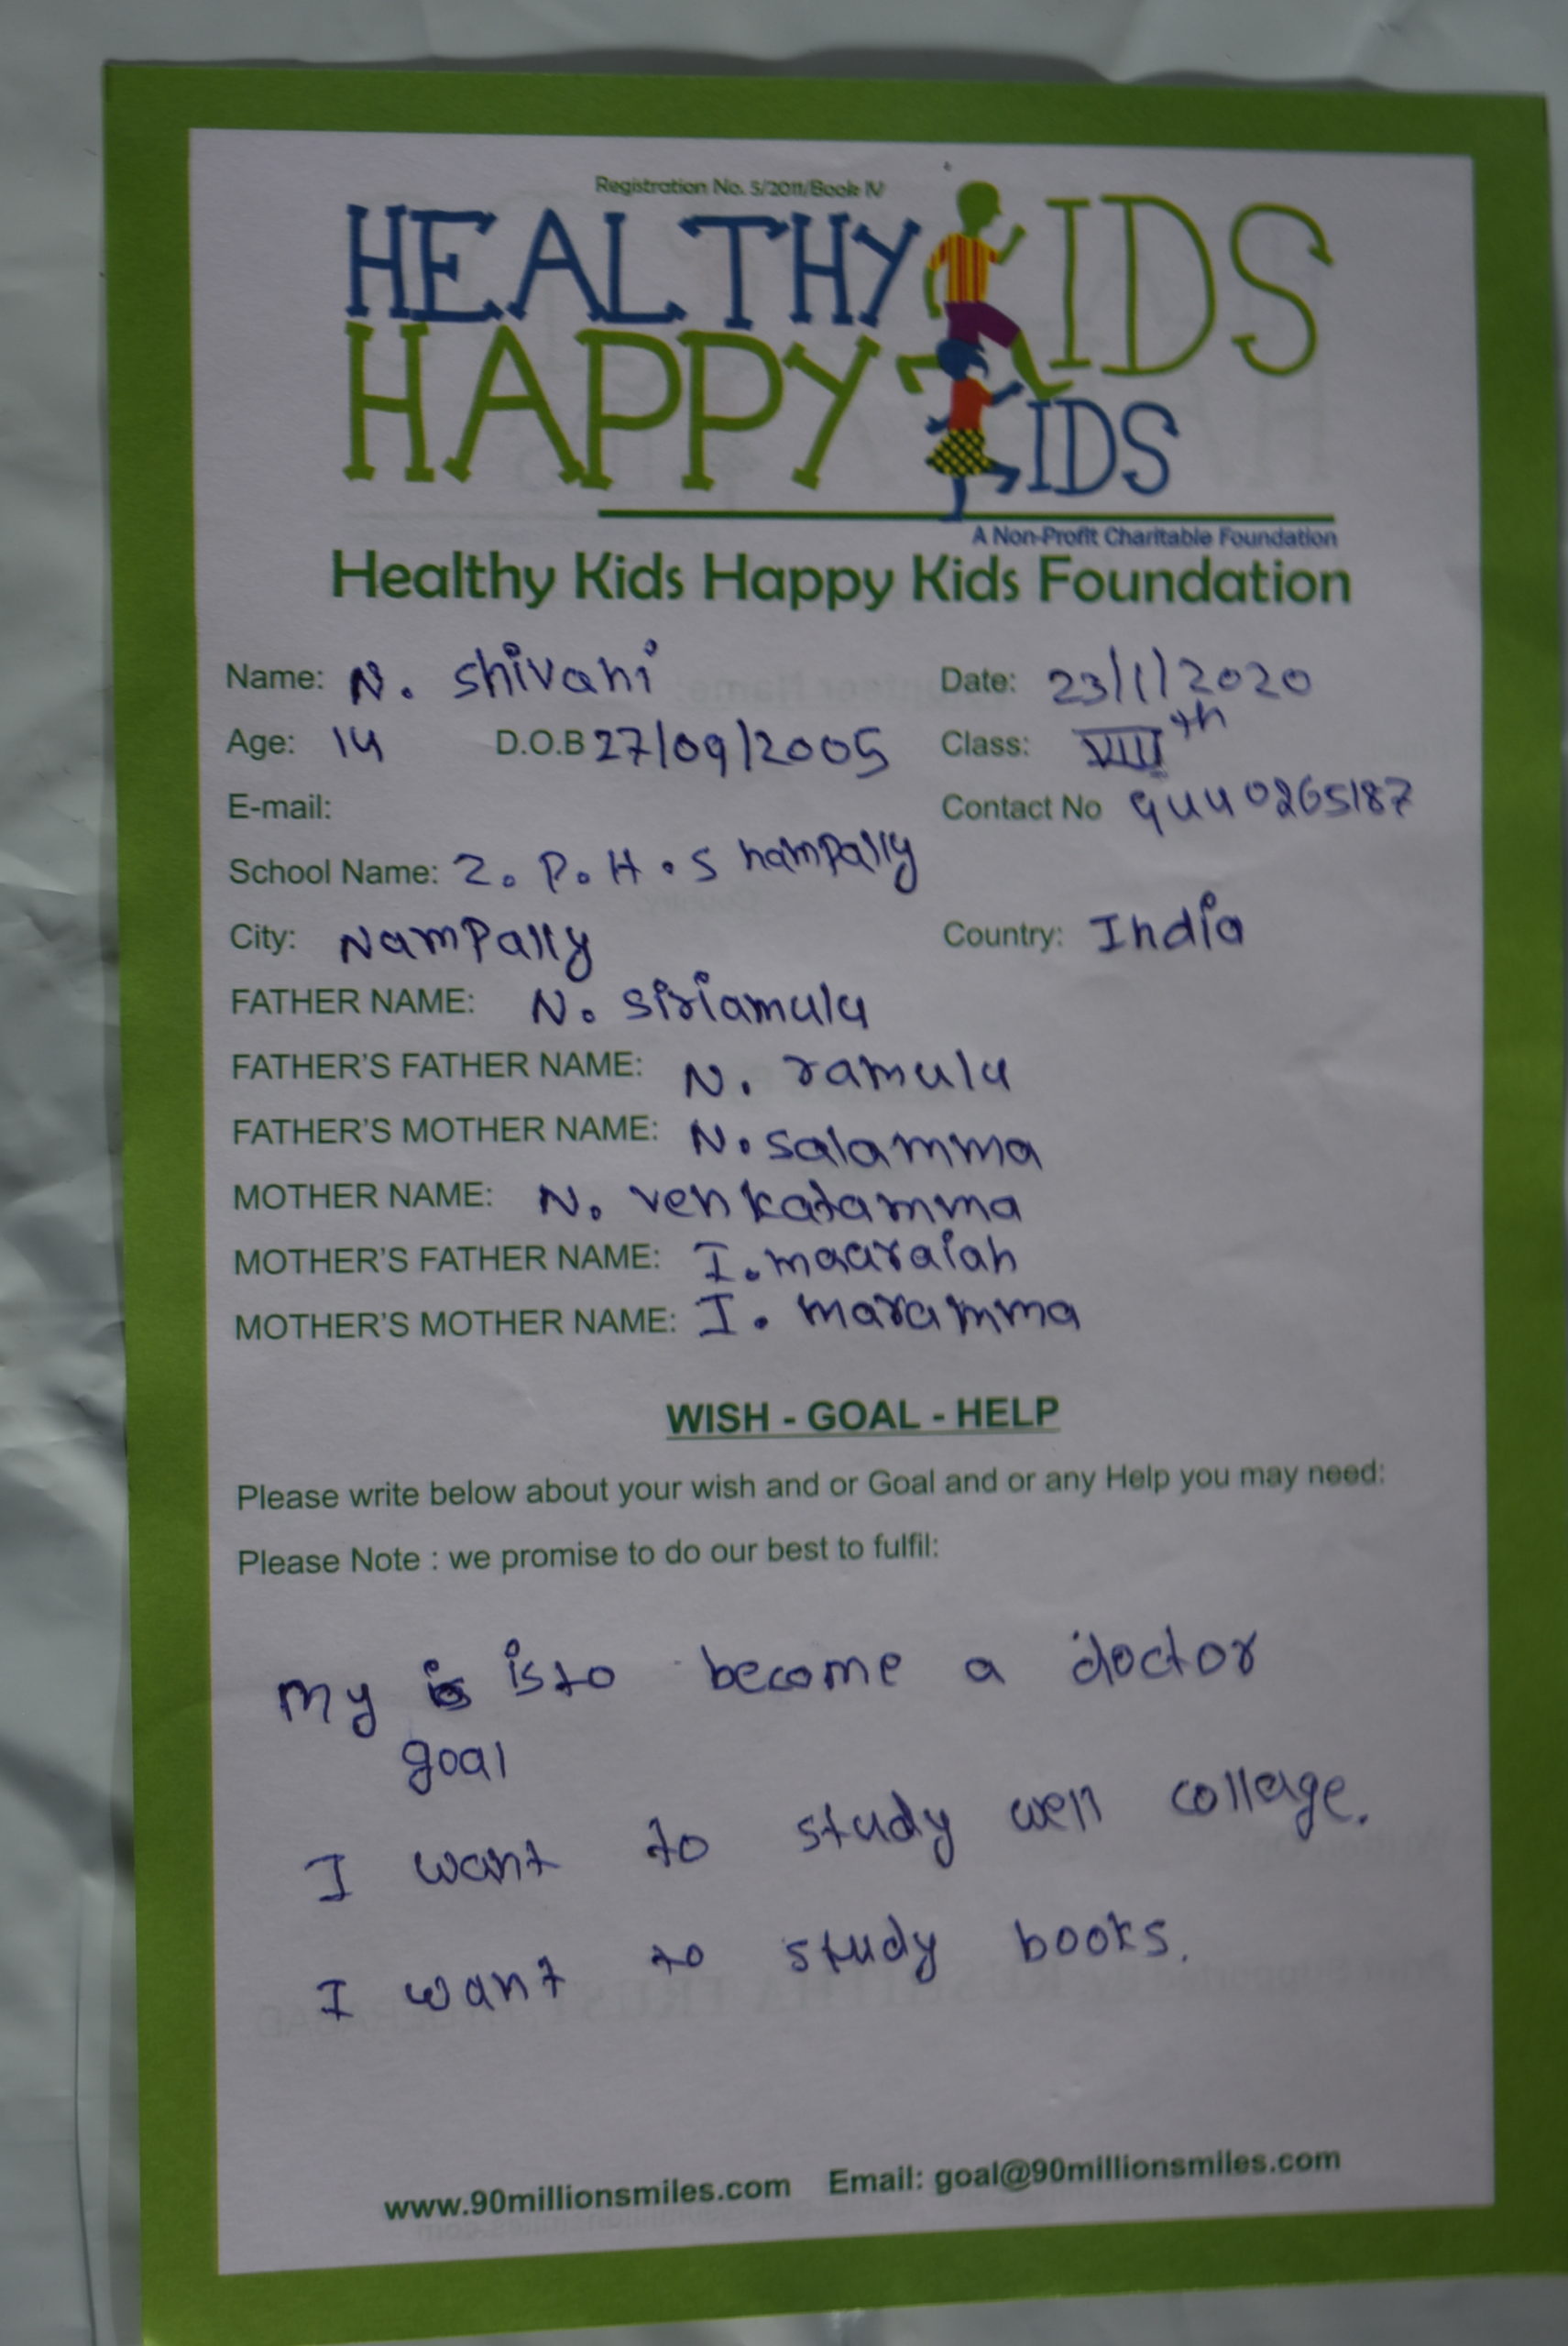 Registration No. 5/2011/Book IV
HEALTHY KIDS
HAPPY KIDS
A Non-Profit Charitable Foundation
Healthy Kids Happy Kids Foundation
Name: N. shivani Date: 23/1/2020
Age: 14 D.O.B 27/09/2005 Class: VIIIth
E-mail: Contact No 9440265187
School Name: Z. P. H. S nampally
City: Nampally Country: India
FATHER NAME: N. siriamulu
FATHER'S FATHER NAME: N. ramulu
FATHER'S MOTHER NAME: N. salamma
MOTHER NAME: N. venkatamma
MOTHER'S FATHER NAME: I. maaraiah
MOTHER'S MOTHER NAME: I. maramma
WISH - GOAL - HELP
Please write below about your wish and or Goal and or any Help you may need:
Please Note : we promise to do our best to fulfil:
My is to become a doctor
goal
I want to study well collage.
I want to study books.
www.90millionsmiles.com Email: goal@90millionsmiles.com